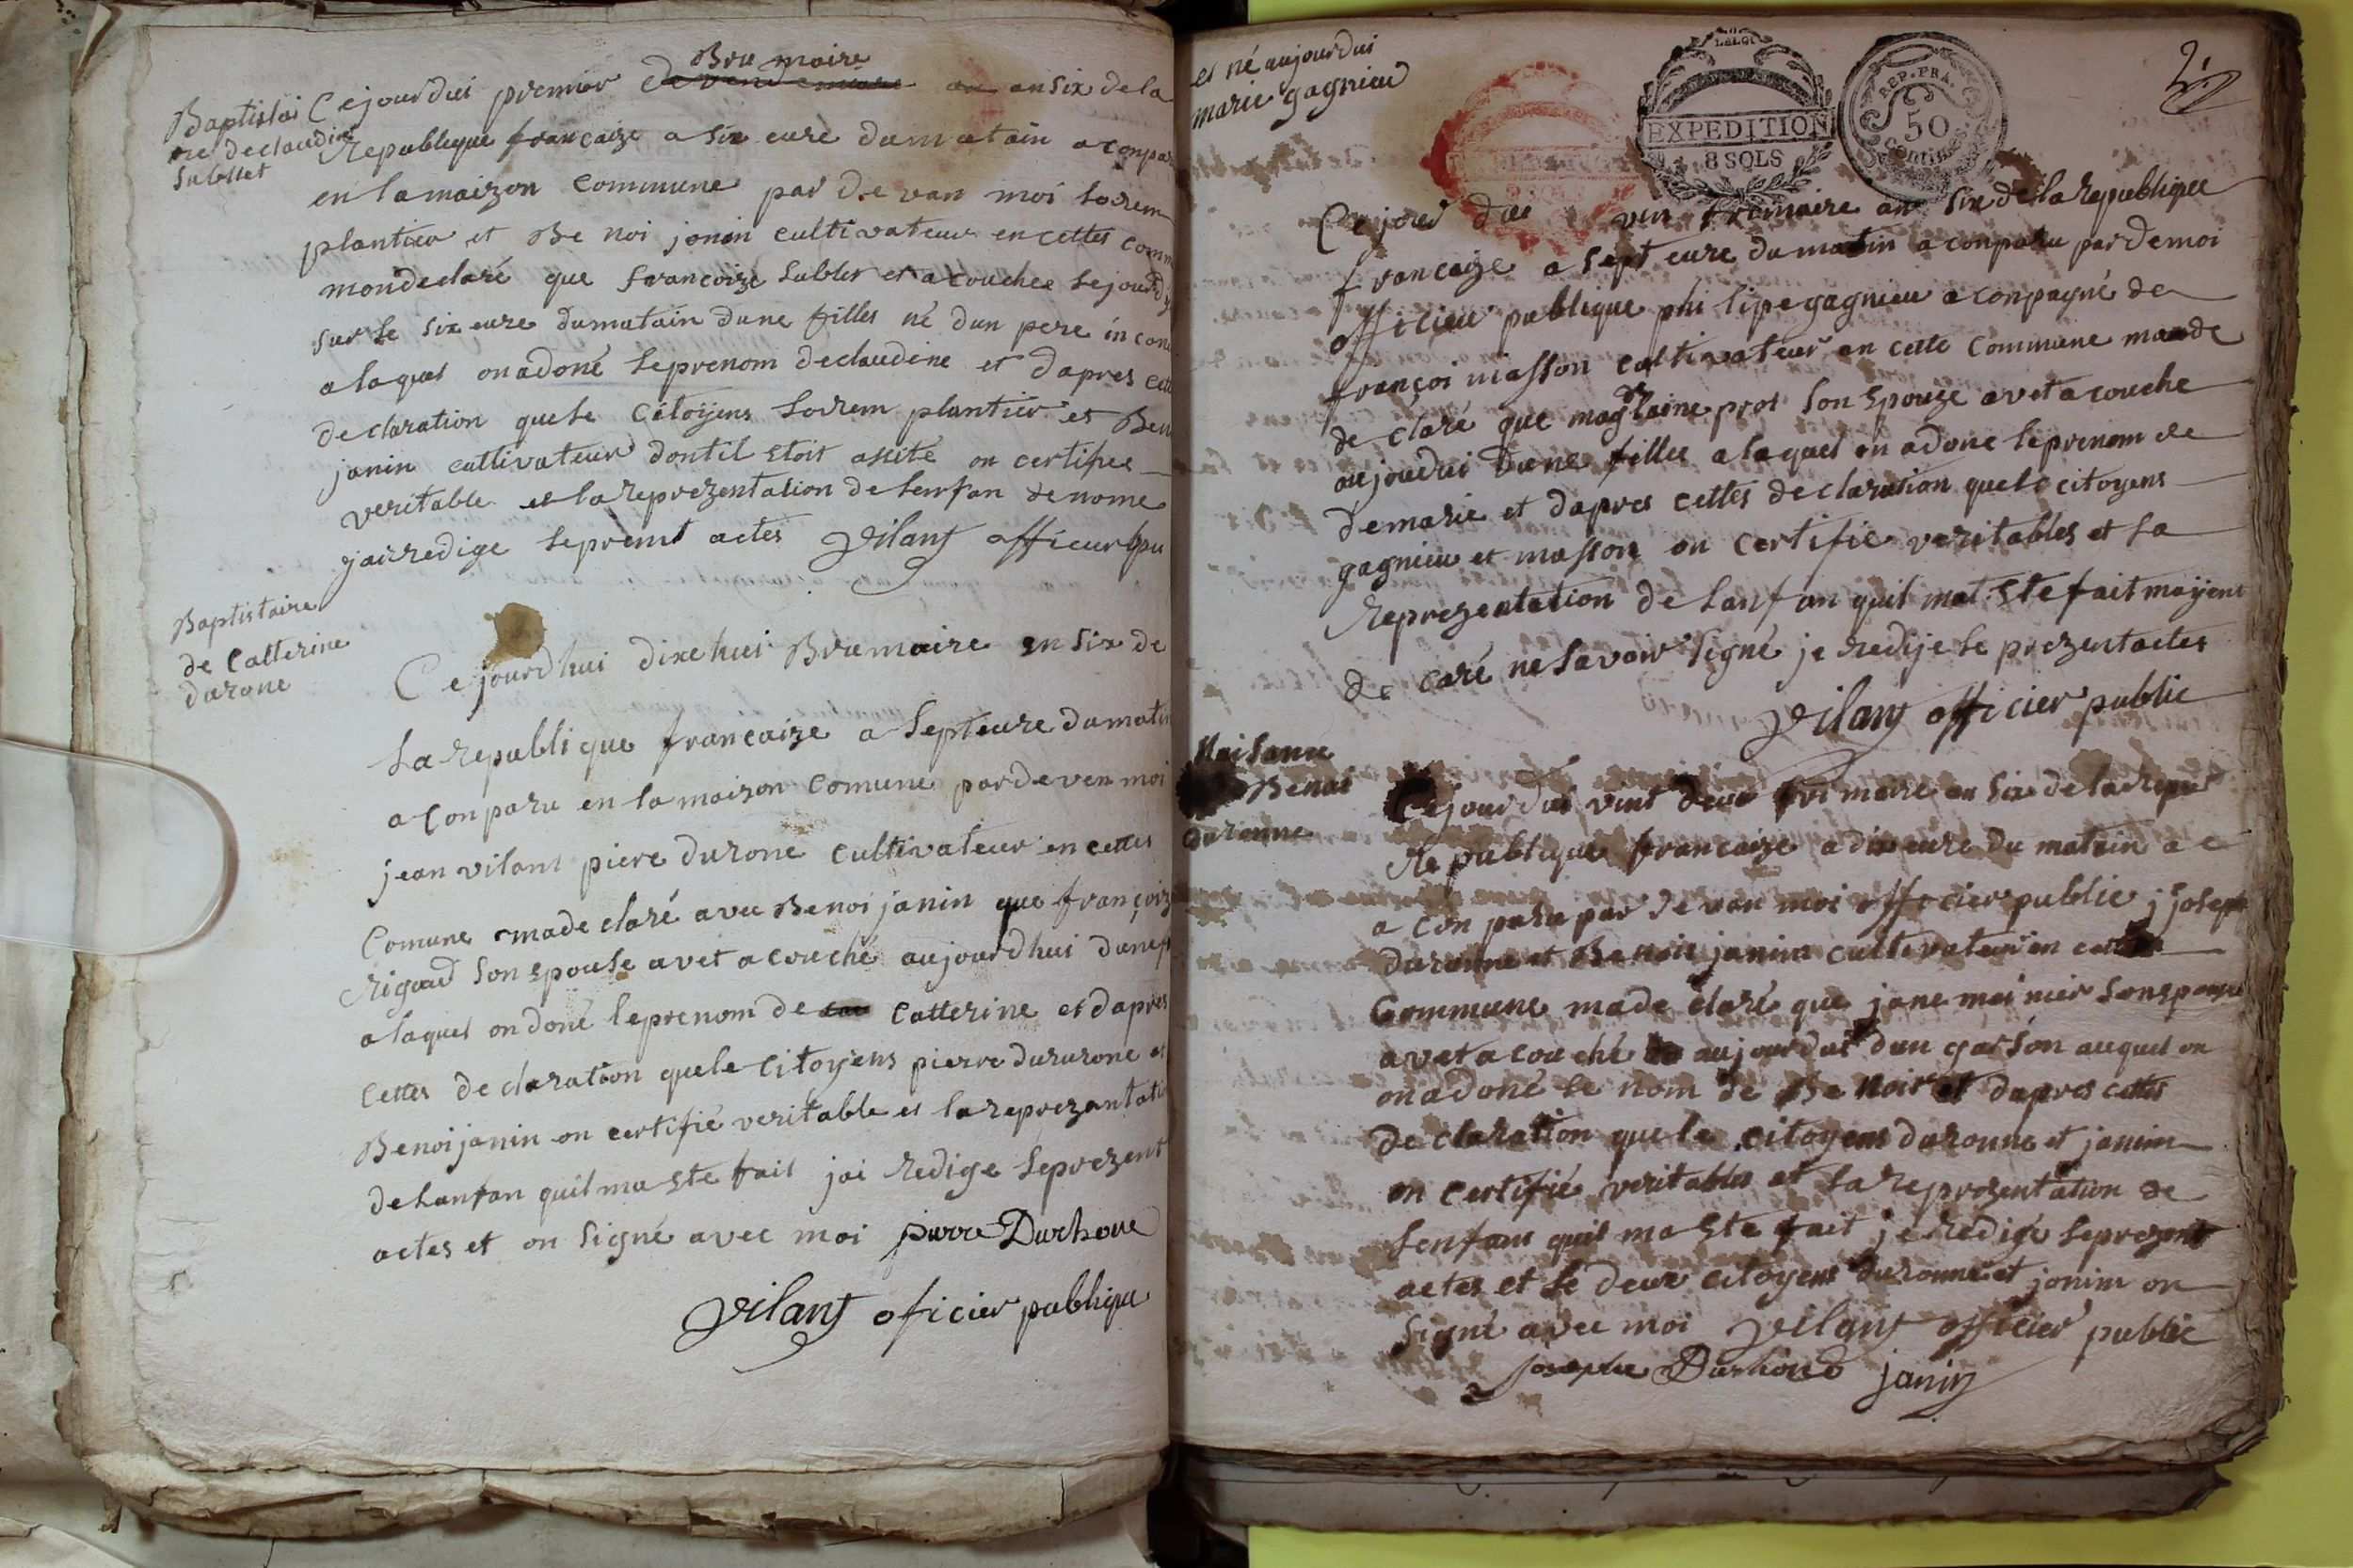 Baptistai
re declaudine
Subllet
Brumaire
Cejourdui premier de vendemiaire an ansix dela
Republique francaize a six eure dumatain aconpa
en lamaizon commune par devan moi Lorem
plantier et Be noi jonin cultivateur encettes comm
mondeclaré que francoize Subles et acouchee sejourd
sur le six eure dumatain dune filles né dun pere in con
alaquel onadoné leprenom declaudine et dapres cett
declaration quele Citoÿens Lorem plantier et Ben
janin cultivateur dontil etoit assité on certifiee
veritable et lareprezentation delenfan denome
jairedige leprent actes vilant officier pu
Baptistaire
de Catterine
durone
Cejourdhui dixehui Brumaire en six de
la republique francaize a septeure dumatin
a Conparu en la maizon Comune pardeven moi
jean vilant piere durone cultivateur en cettes
Comune made claré avec Benoi janin que françoiz
Rigaud son epouse avet acouché aujourdhui dunef
alaquel on doné leprenom de Catterine et dapres
Cettes declaration quele Citoyens pierre dururone et
Benoijanin on certifié veritable et lareprezantati
delanfan quil ma ete fait jai redige leprezent
actes et on signé avec moi pierre Durhone
vilant oficier publique
et né aujourdui
marie gagnieu
EXPEDITION
8 SOLS
REP. FRA.
50
centimes
Cejour dui vin frimaire an six dela republique
francaize a sept eure du matin a conparu par demoi
officieu publique phi lipe gagnieu aconpagné de
françoi masson cultivateur en cette commune made
de claré que magdlaine prot son epouze avet acouche
aujoudui dune filles alaquel on adone leprenom de
demarie et dapres cettes declaration quele citoyens
gagnieu et masson on certifié veritables et la
Reprezentation delanfan quil mat ete fait moÿent
de caré ne savoir signé je redije le prezent actes
vilant officier public
Naisance
Benoi
duronne
Cejourdui vint deux frimaire an six de la repu
Republique francaize a dix eure du matain a c
a conparu par devan moi officier public j joseph
duronne et Benoit janim cultivateur en cettes
Commune made claré que jane moinier son epouze
avet acouché aujourdui dun garson auquel on
onadoné le nom de Be noir et dapres cettes
declaration que le citoyens duronne et janim
on certifié veritables et la reprezentation de
lenfans quil ma ete fait je redigé leprezent
actes et le deux citoyens duronne et jonim on
signé avec moi vilant officier public
Josephe Durhone janin